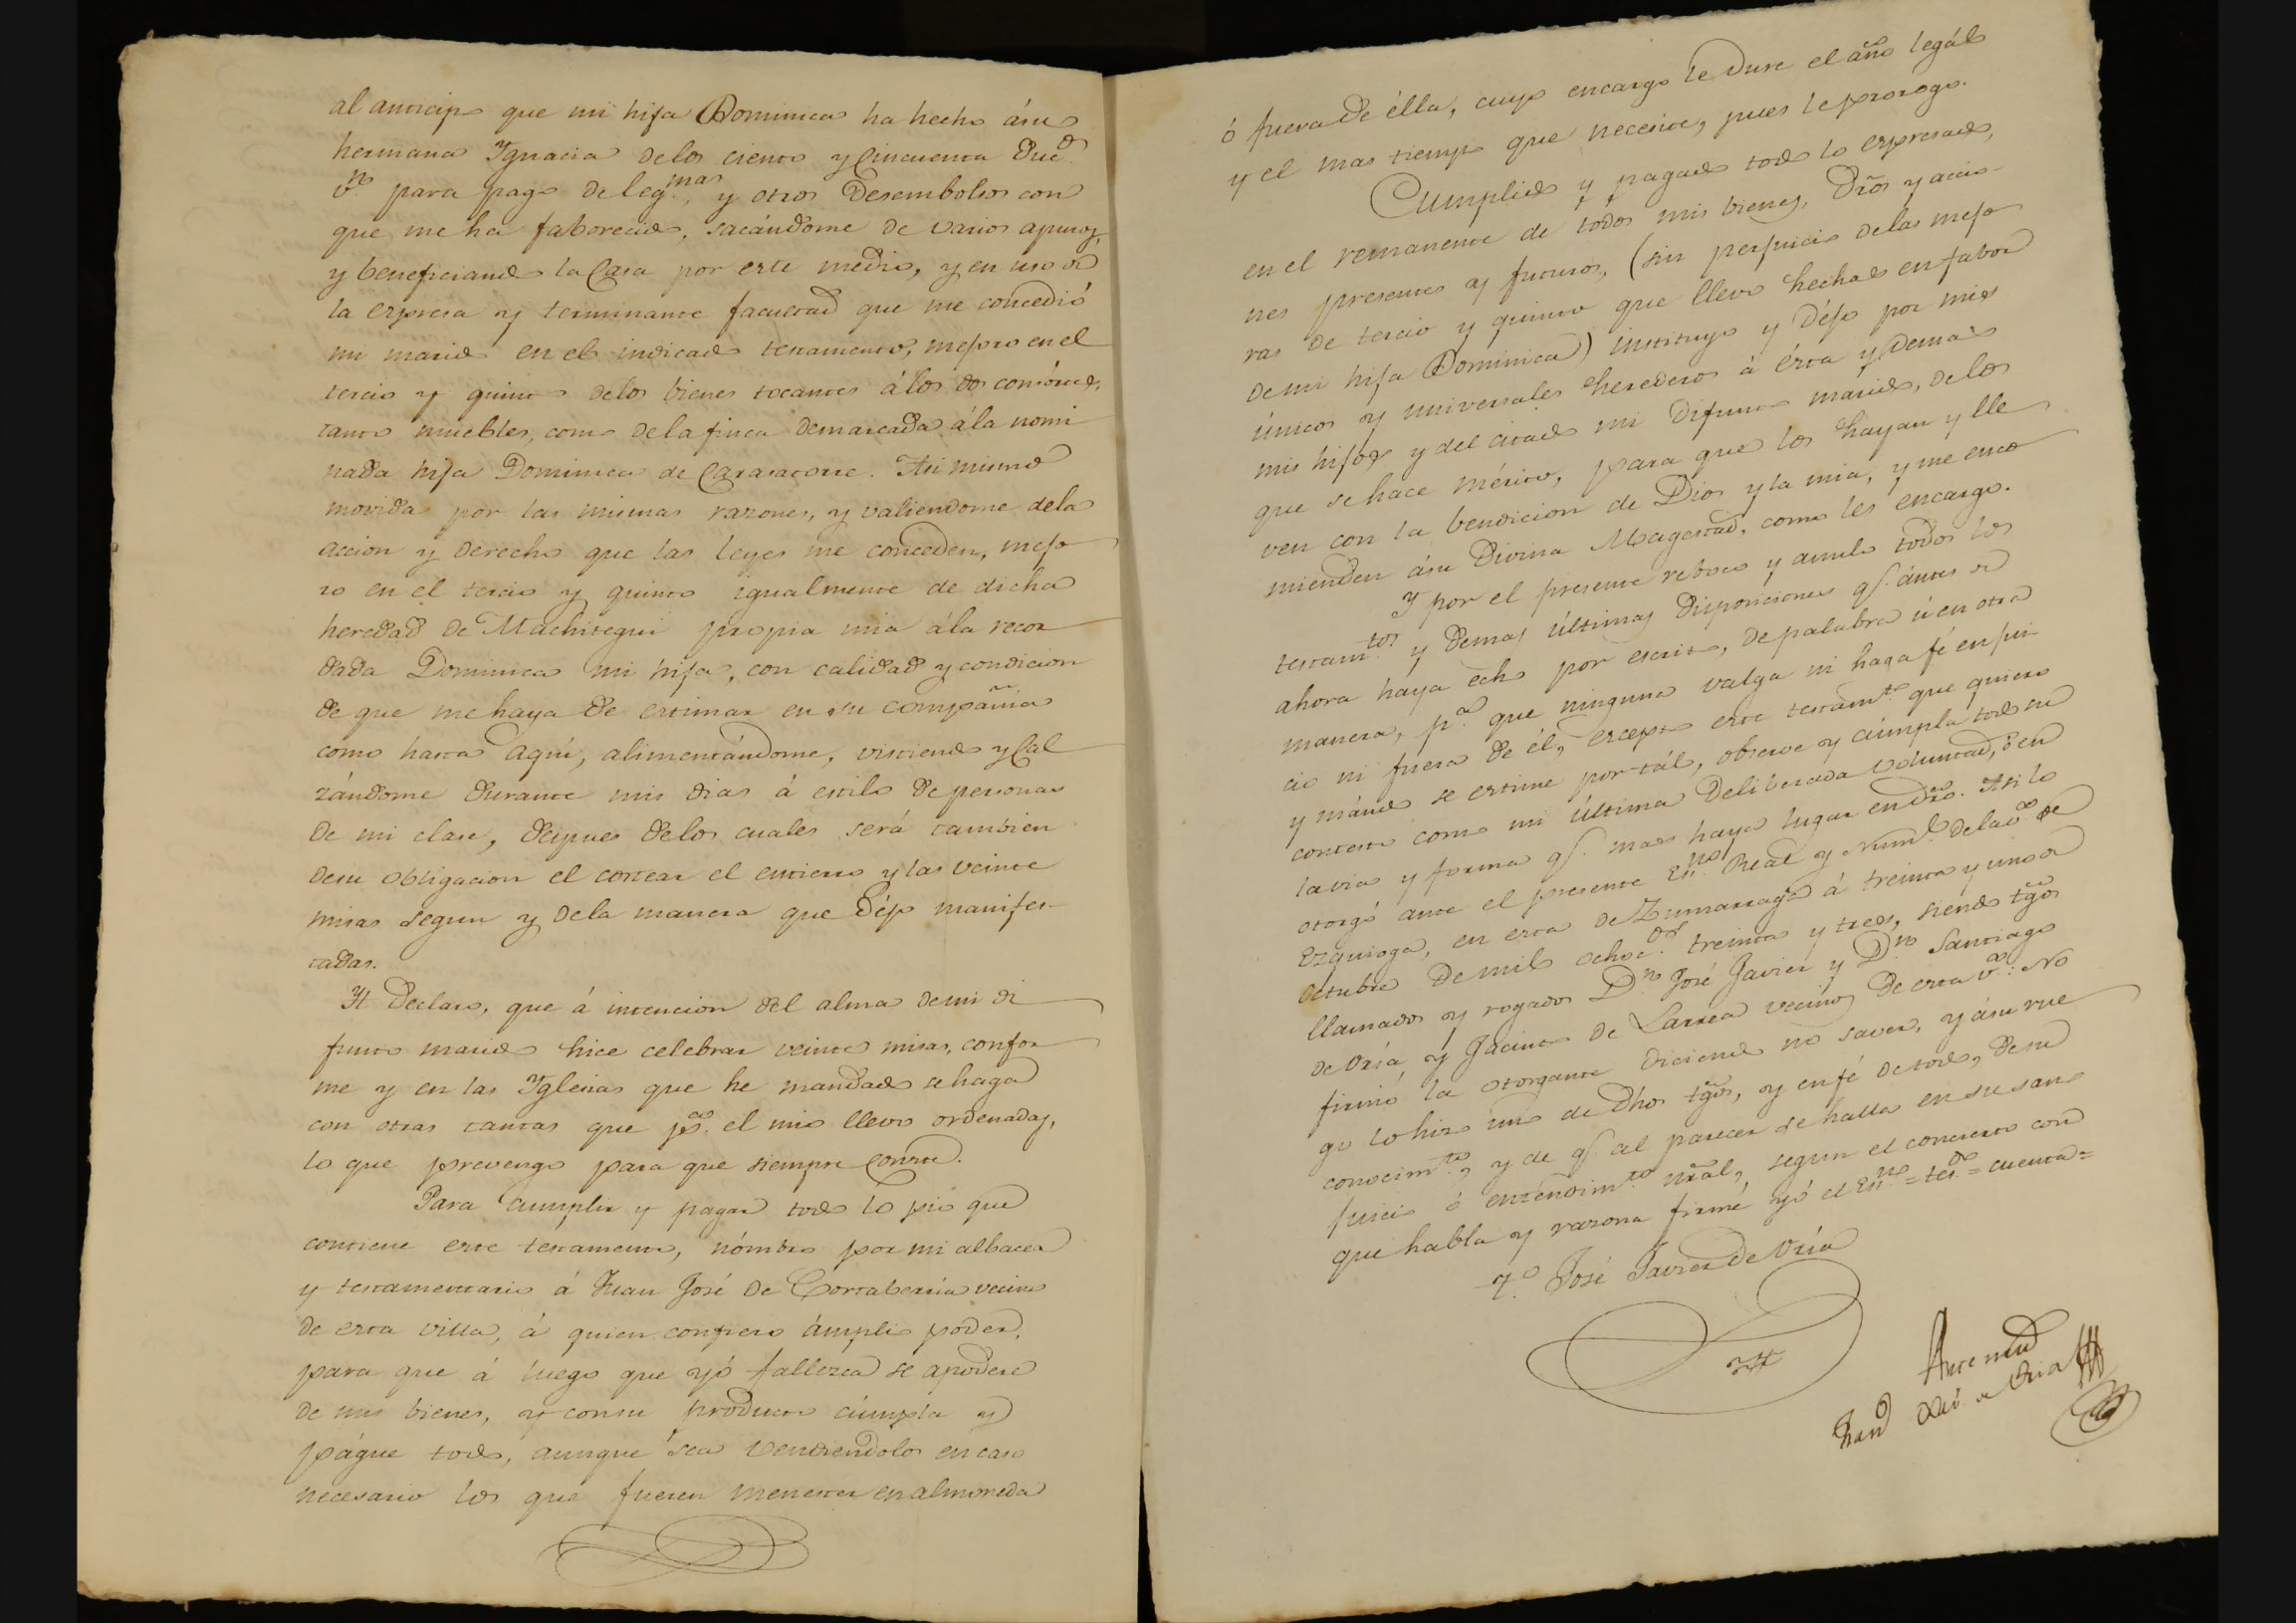 al anticipo que mi hija Dominica ha hecho ásu
hermana Ygnacia delos ciento y Cincuenta Duc.ˢ
v.ⁿ para pago de leg.ᵐᵃˢ, y otros Desembolsos con
que me ha faborecido, sacándome de varios apuros,
y beneficiando la Casa por este médio, y en uso de
la expresa y terminante facultad que me concedió
mi marido en el indicado testamento, mejoro en el
tercio y quinto delos bienes tocantes álos dos consórtes,
tanto muebles, como dela finca demarcada ála nomi
nada hija Dominica de Casasacorre. Asi mismo
movida por las mismas razones, y valiendome dela
accion y derecho que las leyes me conceden, mejo
ro en el tercio y quinto igualmente de dicha
heredad de Machitegui propia mia ála recor
dada Dominica mi hija, con calidad y condicion
de que me haya de estimar en su compañia
como hasta aquí, alimentándome, vistiendo y Cal
zándome durante mis dias á estilo de personas
de mi clase, despues delos cuales será tambien
desu obligacion el costear el entierro y las veinte
misas segun y dela manera que déjo manifes-
tadas.
Yt. Declaro, que á intencion del alma demi di
funto marido hice celebrar veinte misas, confor
me y en las Yglesias que he mandado se haga
con otras tantas que p.ª el mio llevo ordenadas,
lo que prevengo para que siempre Conste.
Para Cumplir y pagar todo lo pio que
contiene este testamento, nómbro por mi albacea
y testamentario á Juan José de Cortaberria vecino
de esta villa, á quien confiero ámplio poder,
para que á luego que yó fallezca se apodere
de mis bienes, y consu producto cúmpla y
págue todo, aunque sea vendiendolos en caso
necesario los que fueren menester en almoneda
ó fuera de élla, cuyo encargo le dure el año legál
y el mas tiempo que necesite, pues le prorogo.
Cumplido y pagado todo lo expresado,
en el remanente de todos mis bienes, dr̃os y accio-
nes presentes y futuros, (sin perjuicio delas mejo
ras de tercio y quinto que llevo hechas en fabor
de mi hija Dominica) instituyo y déjo por mis
únicos y universales herederos á ésta y demas
mis hijos y del citado mi difunto marido, delos
que se hace mérito, para que los hayan y lle
ven con la bendicion de Dios y la mia, y me enco
mienden ásu Divina Magestad, como les encargo.
Y por el presente reboco y anulo todos los
testam.ᵗᵒˢ y demas últimas disposiciones q.ᵉ ántes de
ahora haya echo por escrito, de palabra ú en otra
manera, p.ª que ninguna valga ni haga fé en jui-
cio ni fuera de él, excepto este testam.ᵗᵒ que quiero
y mándo se estime por tál, observe y cúmpla todo su
contesto como mi última deliberada voluntad, ó en
la via y forma q.ᵉ mas haya lugar en dr̃o. Asi lo
otorgó ante el presente Es.ⁿᵒ Real y Num.ˡ dela v.ª de
Ezquioga, en esta de Zumarraga á treinta y uno de
Octubre de mil ochoc.ᵒˢ treinta y tres, siendo tg̃os
llamados y rogados D.ⁿ José Javier y D.ⁿ Santiago
de Uría, y Jacinto de Larrea vecinos de esta v.ª: No
firmó la otorgante diciendo no saver, y ásu rue
go lo hizo uno de dhos tg̃os, y en fé de todo, desu
conocim.ᵗᵒ, y de q.ᵉ al parecer se halla en su sano
juicio ó entendim.ᵗᵒ nr̃al, segun el concierto con
que habla y razona firmé yó el Es.ⁿᵒ = tes.ᵈᵒ = cuenta =
T.º José Javier de Uría
Ante mi
de Uria